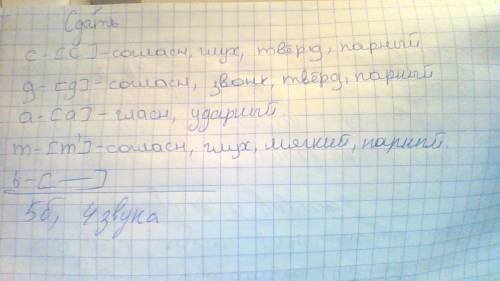 Сдать
с - [с] - согласн, глух, твёрд, парный
д - [д] - согласн, звонк, твёрд, парный
а - [а] - гласн, ударный
т - [т'] - согласн, глух, мягкий, парный.
ь - [—]
5б, 4 звука